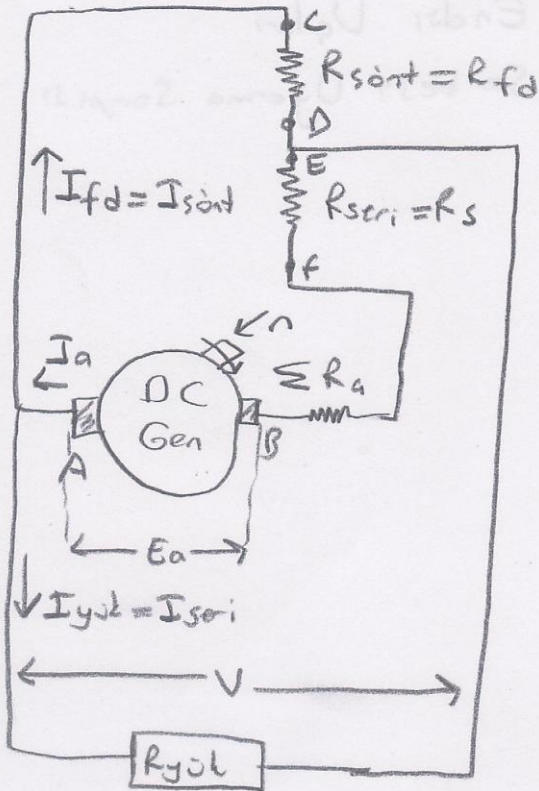 C
Rşönt = Rfd
D
E
Ifd = Işönt
Rseri = Rs
F
n
Ia
DC
Gen
Σ Ra
A
B
Ea
Iyük = Iseri
V
Ryük